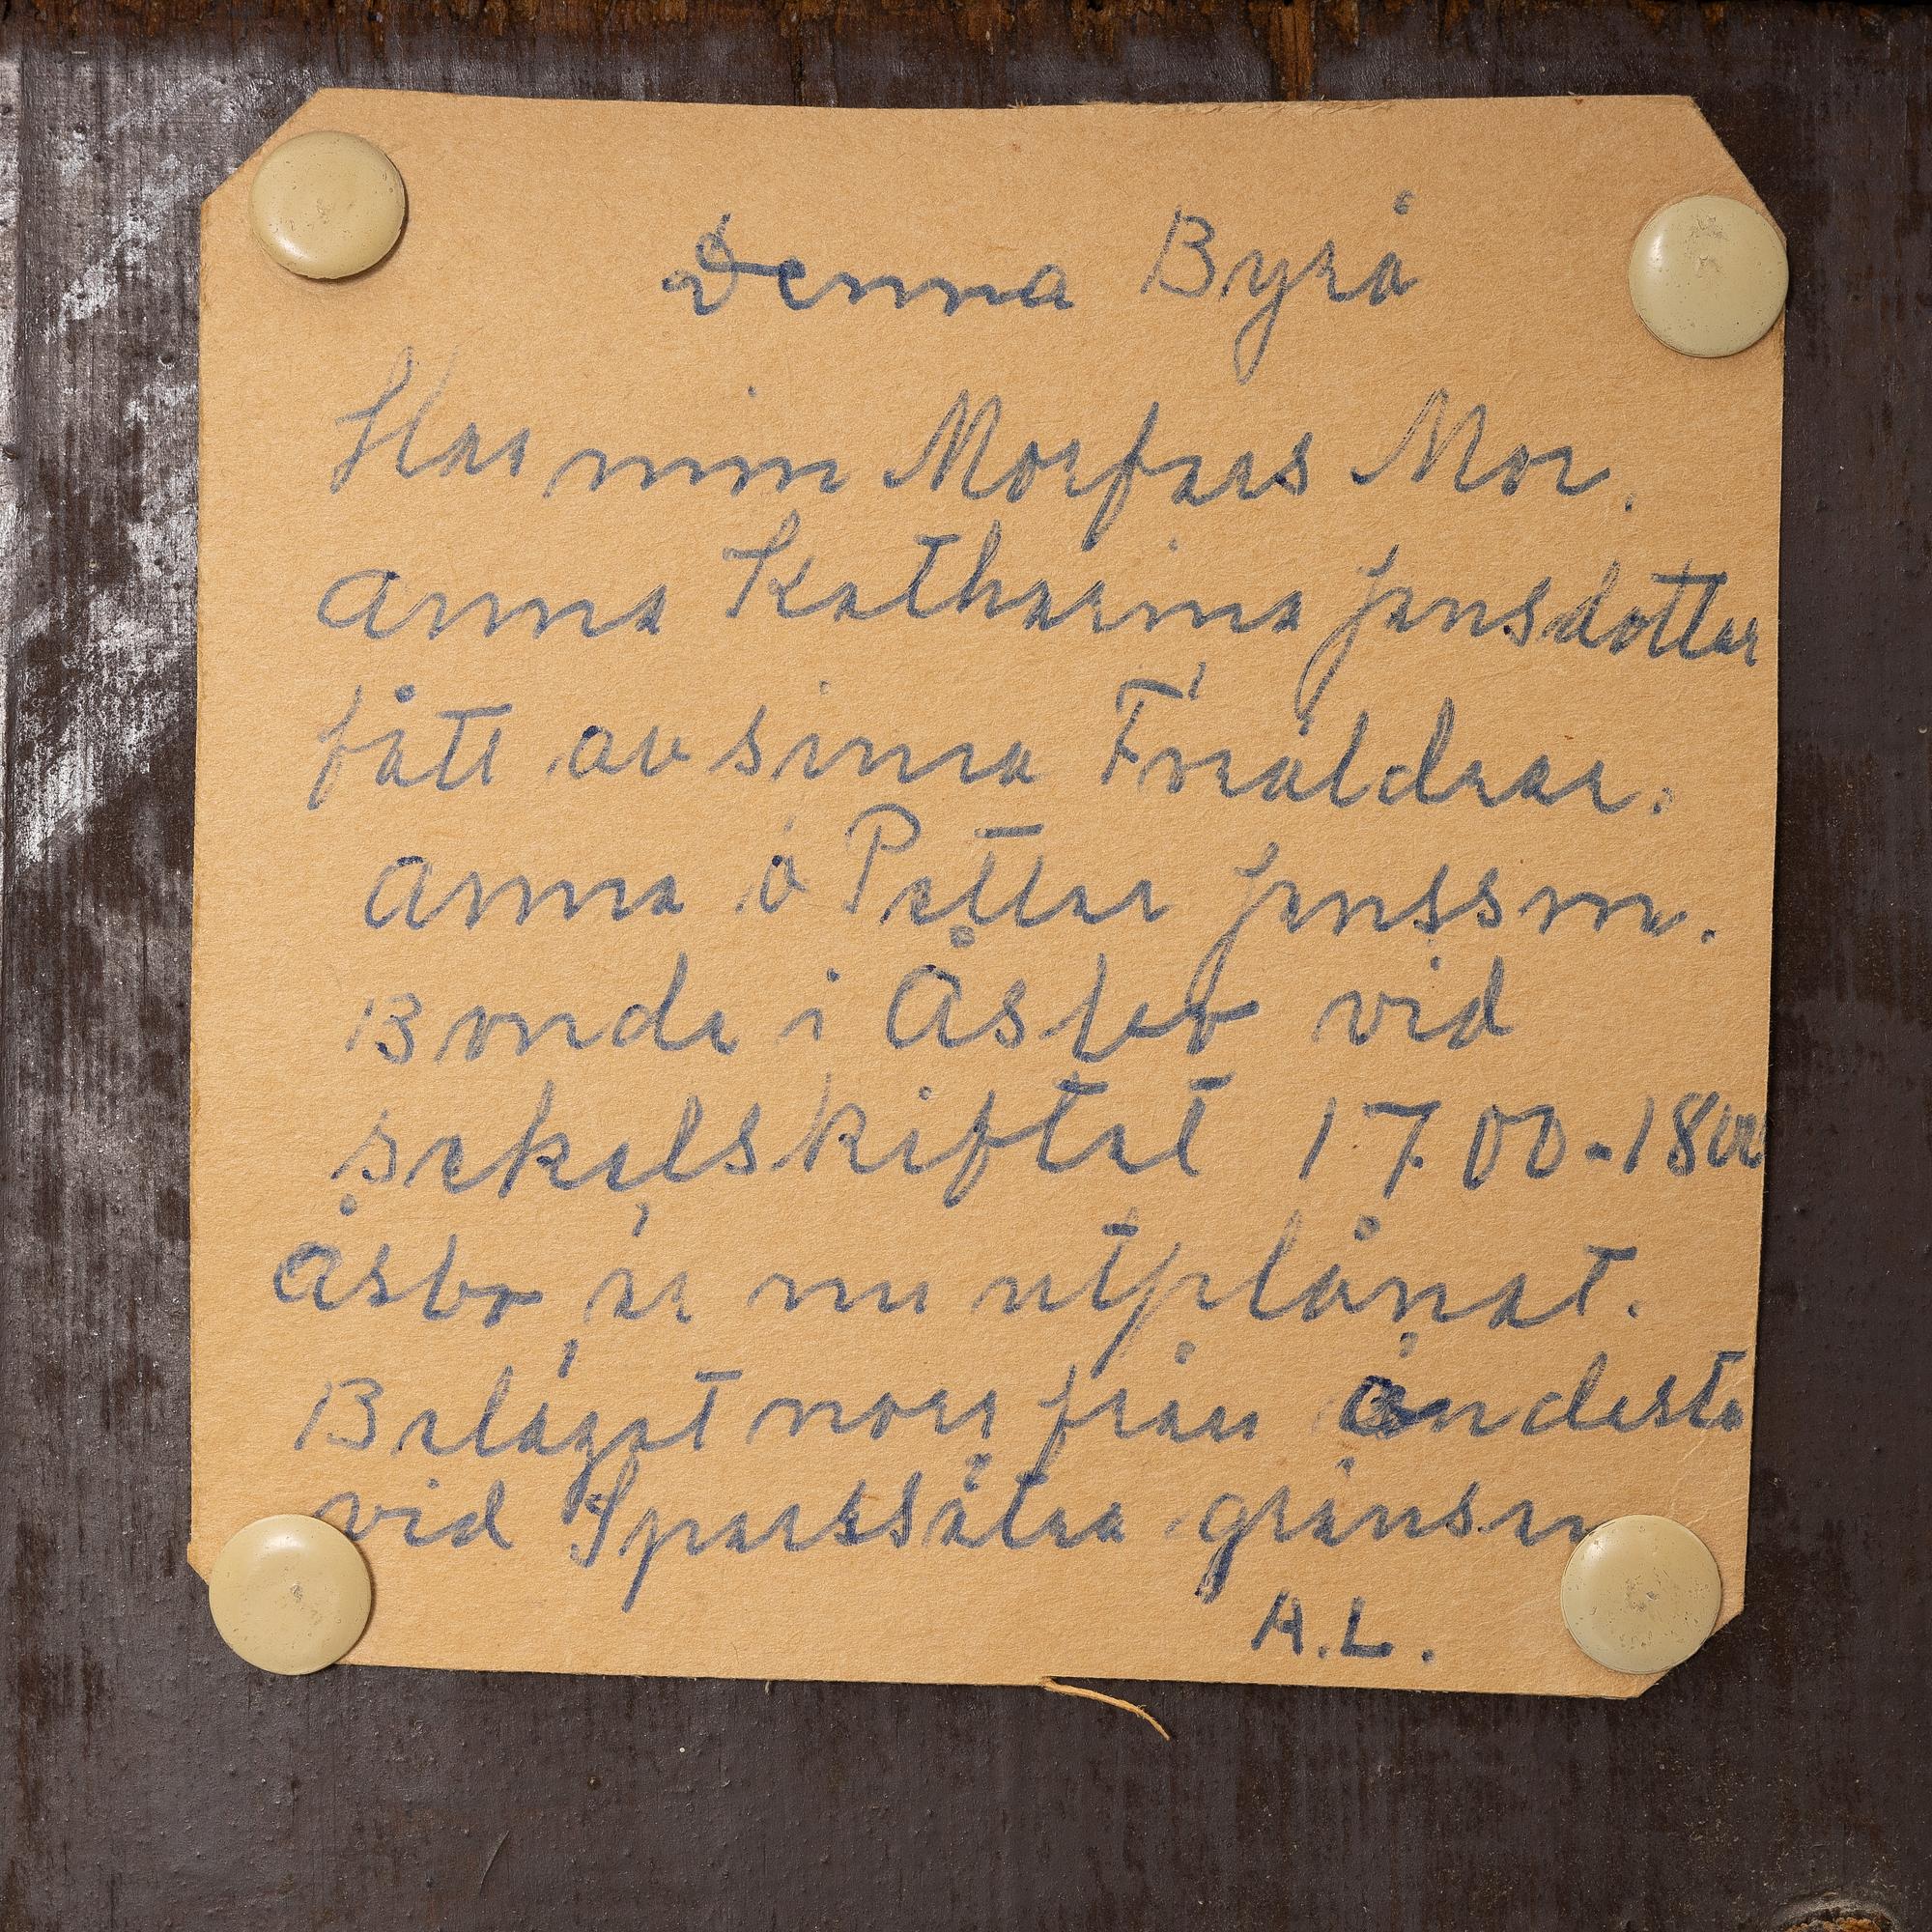 Denna Byrå
Har min Morfars Mor.
Anna Katharina Jansdotter
fått av sina Föräldrar.
Anna å Petter Jansson.
Bonde i Åsbo vid
sekelskiftet 1700-1800
Åsbo är nu utplånat.
Beläget norr från Öndesta
vid Sparrsätra gränsen
A.L.